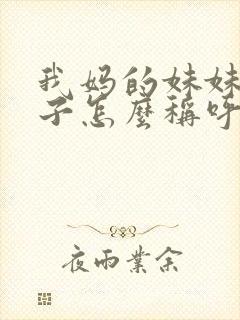 我妈的妹妹
子怎麼稱呼
夜雨業余